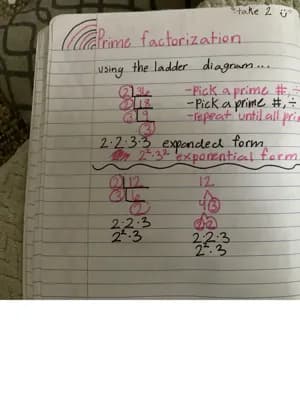 take 2
Prime factorization
using the ladder diagram...
2 36 -Pick a prime #, ÷
2 18 -Pick a prime #, ÷
3 9 -repeat until all pri
3
2·2·3·3 expanded form
2²·3² exponential form
2 12 12
3 6 4 3
2 2·2
2·2·3 2·2·3
2²·3 2²·3